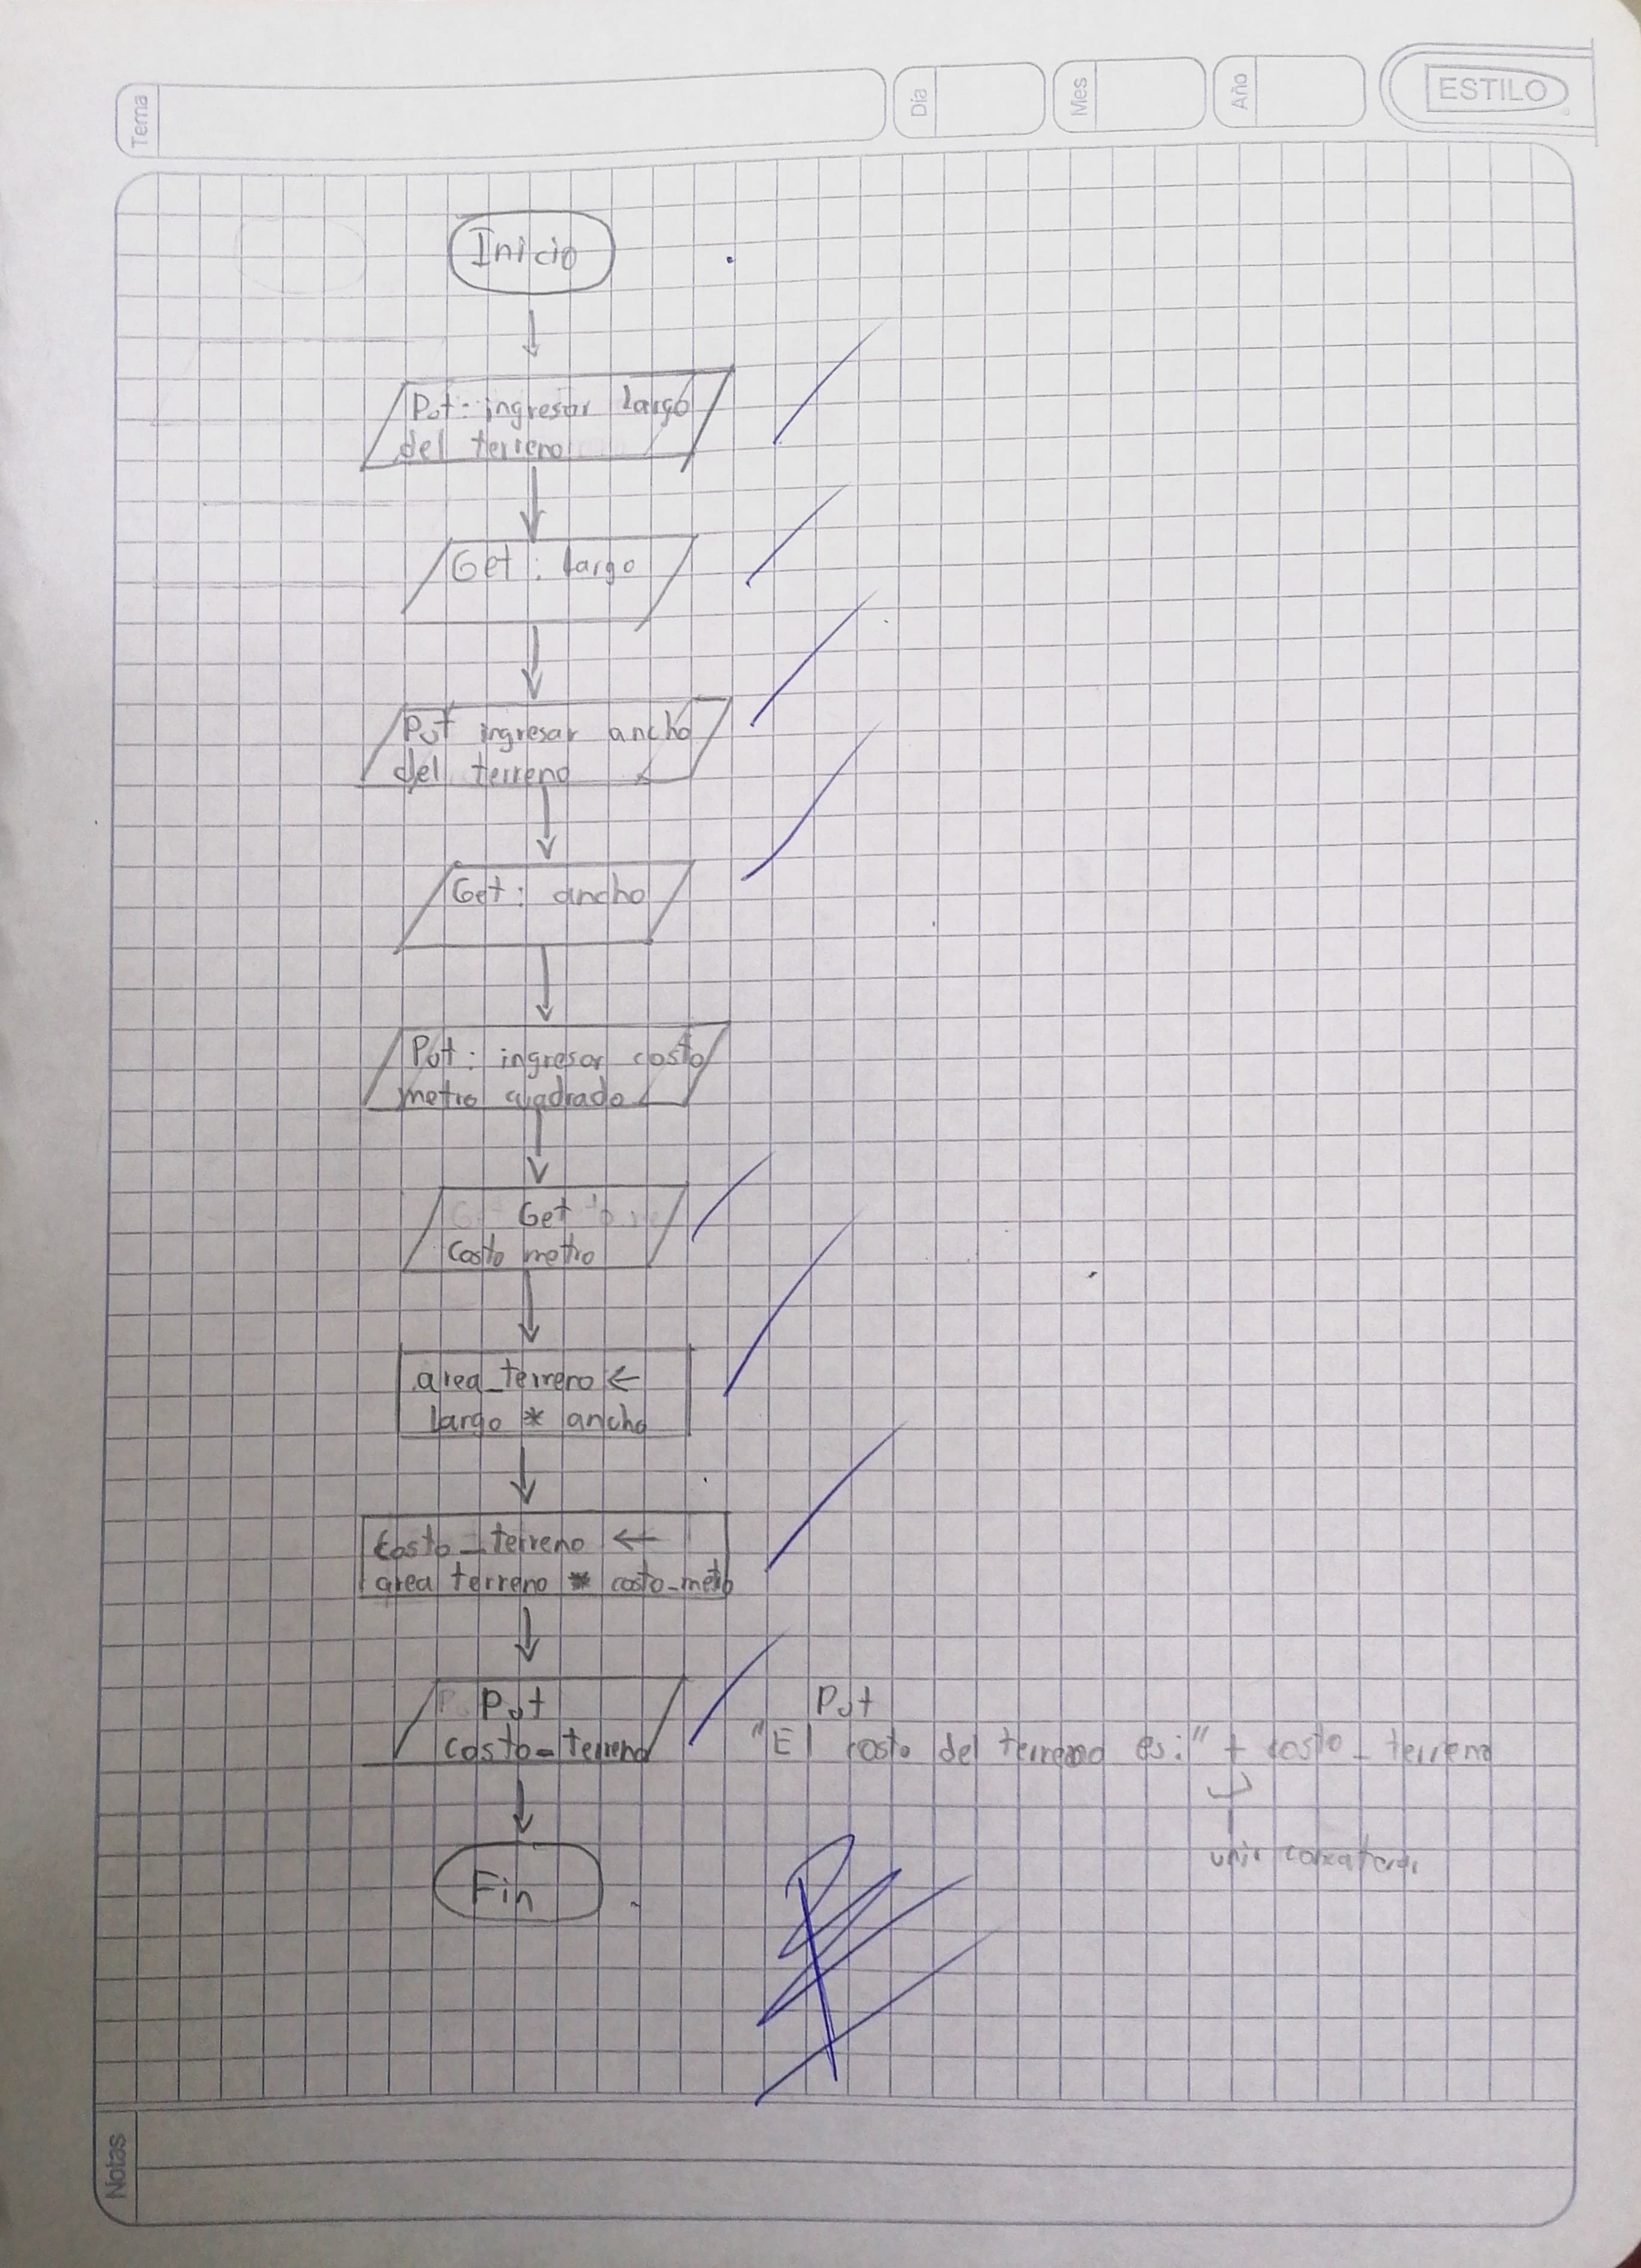 Tema
Día
Mes
Año
ESTILO
Inicio
Put: ingresar largo
del terreno
Get: largo
Put ingresar ancho
del terreno
Get: ancho
Put: ingresar costo
metro cuadrado
Get
costo metro
area_terreno ←
largo * ancho
costo_terreno ←
area terreno * costo_metro
Put
costo_terreno
Put
"El costo del terreno es:" + costo_terreno
unir
Fin
Notas